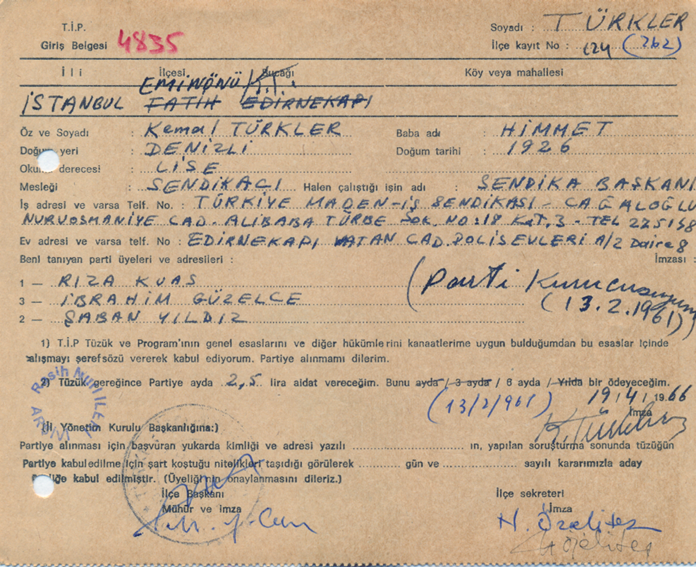 T.İ.P.
Giriş Belgesi 4835
Soyadı : TÜRKLER
İlçe kayıt No : 124 (262)
İli İlçesi Bucağı Köy veya mahallesi
EMİNÖNÜ
İSTANBUL FATİH EDİRNEKAPI
Öz ve Soyadı : Kemal TÜRKLER Baba adı : HİMMET
Doğum yeri : DENİZLİ Doğum tarihi : 1926
Okul derecesi : LİSE
Mesleği : SENDİKACI Halen çalıştığı işin adı : SENDİKA BAŞKANI
İş adresi ve varsa Telf. No. : TÜRKİYE MADEN-İŞ SENDİKASI - CAĞALOĞLU
NURUOSMANİYE CAD. ALİBABA TÜRBE Sok. NO:18 Kat.3 - TEL 225158
Ev adresi ve varsa telf. No : EDİRNEKAPI VATAN CAD. POLİSEVLERİ A/2 Daire 8
Beni tanıyan parti üyeleri ve adresileri : İmzası :
1 — RIZA KUAS
3 — İBRAHİM GÜZELCE
2 — ŞABAN YILDIZ
(Parti Kurucusuyum
(13.2.1961))
1) T.İ.P Tüzük ve Program'ının genel esaslarını ve diğer hükümlerini kanaatlerime uygun bulduğumdan bu esaslar içinde
çalışmayı şeref sözü vererek kabul ediyorum. Partiye alınmamı dilerim.
2) Tüzük gereğince Partiye ayda 2,5 lira aidat vereceğim. Bunu ayda / 3 ayda / 6 ayda / Yılda bir ödeyeceğim.
(13/2/961) 19/4/1966
İmza
(İli Yönetim Kurulu Başkanlığına:)
Partiye alınması için başvuran yukarda kimliği ve adresi yazılı ın, yapılan soruşturma sonunda tüzüğün
Partiye kabul edilme için şart koştuğu nitelikleri taşıdığı görülerek gün ve sayılı kararımızla aday
üyeliğe kabul edilmiştir. (Üyeliğin onaylanmasını dileriz.)
İlçe Başkanı İlçe sekreteri
Mühür ve imza İmza